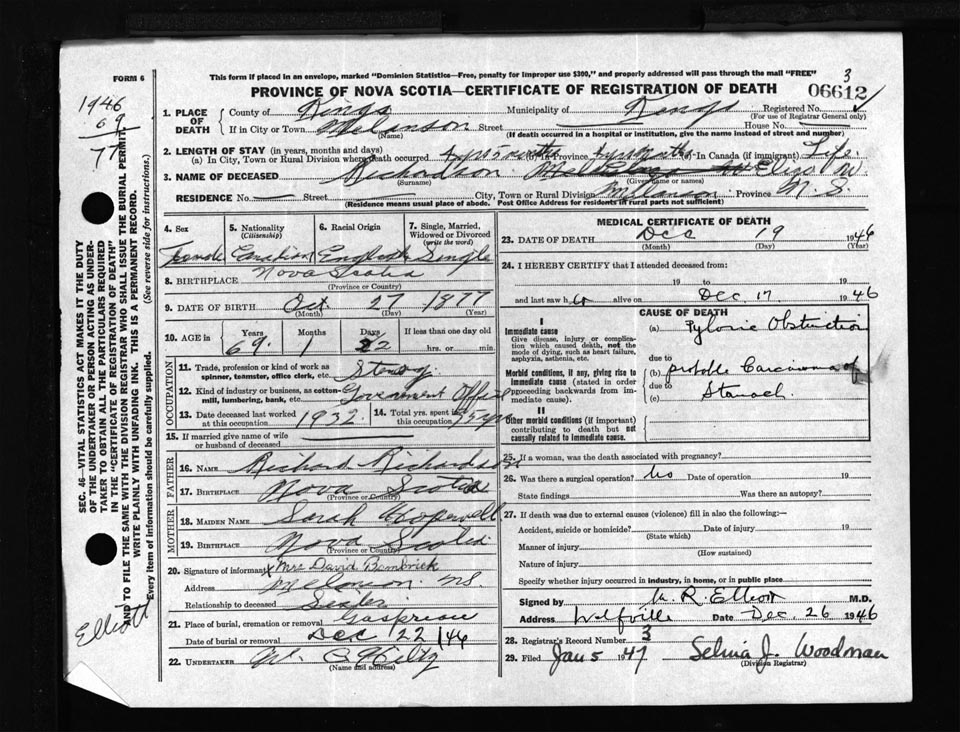 FORM 6
This form if placed in an envelope, marked "Dominion Statistics—Free, penalty for improper use $300," and properly addressed will pass through the mail "FREE"
3
PROVINCE OF NOVA SCOTIA—CERTIFICATE OF REGISTRATION OF DEATH
06612
1946
69
77
1. PLACE OF DEATH
County of Kings Municipality of Kings Registered No.
(For use of Registrar General only)
If in City or Town Melanson Street House No.
(Name) (If death occurred in a hospital or institution, give the name instead of street and number)
2. LENGTH OF STAY (in years, months and days)
(a) In City, Town or Rural Division where death occurred 5 months (b) in Province months (c) in Canada (if immigrant) Life
3. NAME OF DECEASED Richardson Eliz. W.
(Surname) (Given name or names)
RESIDENCE No. Street City, Town or Rural Division Melanson Province N. S.
(Residence means usual place of abode. Post Office Address for residents in rural parts not sufficient)
4. Sex
Female
5. Nationality (Citizenship)
Canadian
6. Racial Origin
English
7. Single, Married, Widowed or Divorced (write the word)
Single
8. BIRTHPLACE Nova Scotia
(Province or Country)
9. DATE OF BIRTH Oct 27 1877
(Month) (Day) (Year)
10. AGE in Years Months Days If less than one day old
69 1 22 hrs. or min.
OCCUPATION
11. Trade, profession or kind of work as spinner, teamster, office clerk, etc. Stenog
12. Kind of industry or business, as cotton-mill, lumbering, bank, etc. Government Office
13. Date deceased last worked at this occupation 1932
14. Total yrs. spent in this occupation
15. If married give name of wife or husband of deceased
FATHER
16. NAME Richard Richardson
17. BIRTHPLACE Nova Scotia
(Province or Country)
MOTHER
18. MAIDEN NAME Sarah Hopewell
19. BIRTHPLACE Nova Scotia
(Province or Country)
20. Signature of informant x Mrs David Bembrick
Address Melanson NS
Relationship to deceased Sister
21. Place of burial, cremation or removal Gaspreau
Date of burial or removal Dec 22/46
22. UNDERTAKER W. C Hiltz
(Name and address)
MEDICAL CERTIFICATE OF DEATH
23. DATE OF DEATH Dec 19 1946
(Month) (Day) (Year)
24. I HEREBY CERTIFY that I attended deceased from:
19 to 19
and last saw h alive on Dec. 17 1946
CAUSE OF DEATH
I
Immediate cause
Give disease, injury or complication which caused death, not the mode of dying, such as heart failure, asphyxia, asthenia, etc.
(a) Pyloric Obstruction
due to
Morbid conditions, if any, giving rise to immediate cause (stated in order proceeding backwards from immediate cause).
(b) probable Carcinoma of
due to
(c) Stomach.
II
Other morbid conditions (if important) contributing to death but not causally related to immediate cause.
25. If a woman, was the death associated with pregnancy?
26. Was there a surgical operation? No Date of operation 19
State findings Was there an autopsy?
27. If death was due to external causes (violence) fill in also the following:—
Accident, suicide or homicide? Date of injury 19
(State which)
Manner of injury
(How sustained)
Nature of injury
Specify whether injury occurred in industry, in home, or in public place
Signed by R. Elliott M.D.
Address Wolfville Date Dec. 26 1946
28. Registrar's Record Number 3
29. Filed Jan 5 1947 Selma J. Woodman
(Division Registrar)
SEC. 46—VITAL STATISTICS ACT MAKES IT THE DUTY
OF THE UNDERTAKER OR PERSON ACTING AS UNDER-
TAKER TO OBTAIN ALL THE PARTICULARS REQUIRED
IN THE "CERTIFICATE OF REGISTRATION OF DEATH"
AND TO FILE THE SAME WITH THE DIVISION REGISTRAR WHO SHALL ISSUE THE BURIAL PERMIT.
WRITE PLAINLY WITH UNFADING INK. THIS IS A PERMANENT RECORD.
Every item of information should be carefully supplied. (See reverse side for instructions.)
Elliott